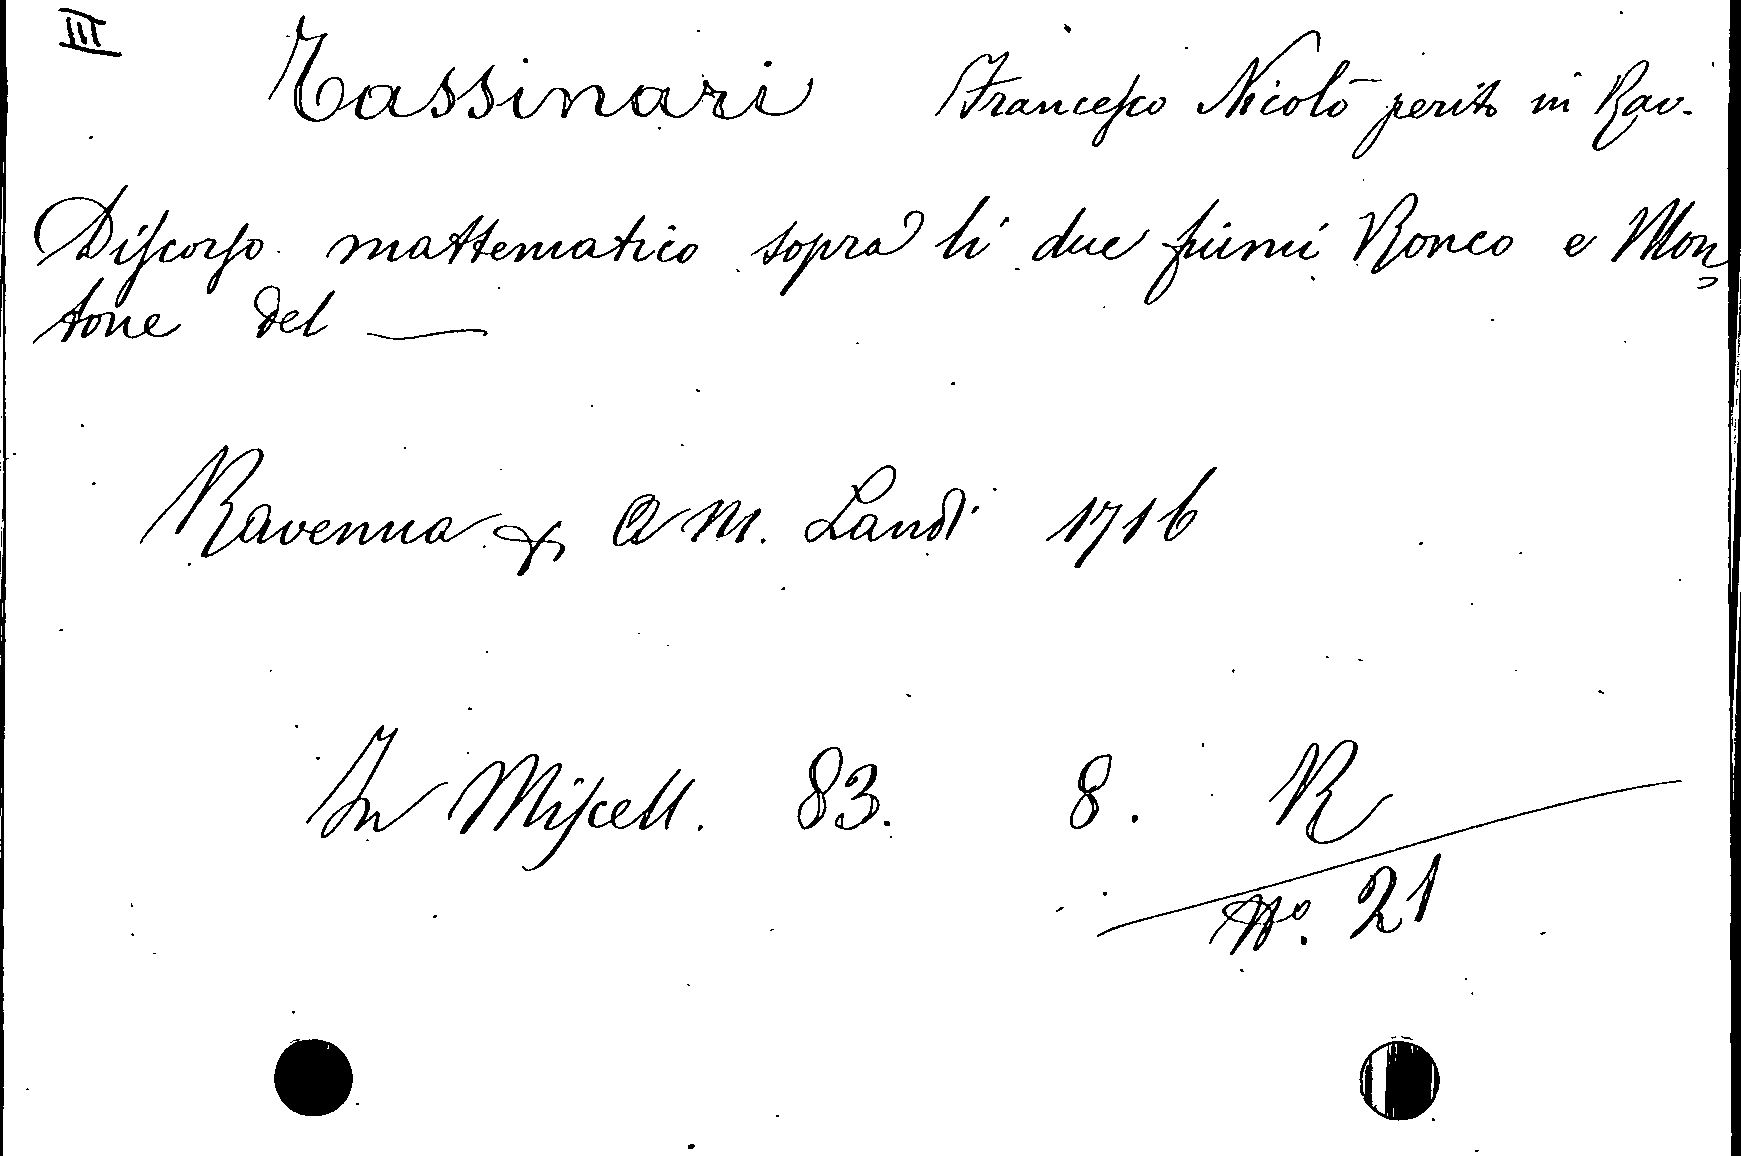 III
Tassinari Francesco Nicolò perito in Rav.
Discorso mattematico sopra li due fiumi Ronco e Mon=
tone del —
Ravenna A M. Landi 1716
In Miscell. 83. 8. R
No. 21